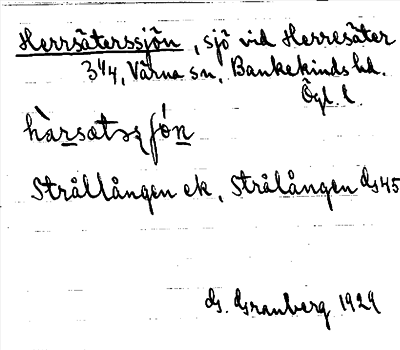 Herrsäterssjön, sjö vid Herresäter
3 1/4, Värna sn, Bankekinds hd.
Ögl. l.
hàrsætsʂʃón
Strållången ek, Strålången Gs 45
G. Granberg 1929